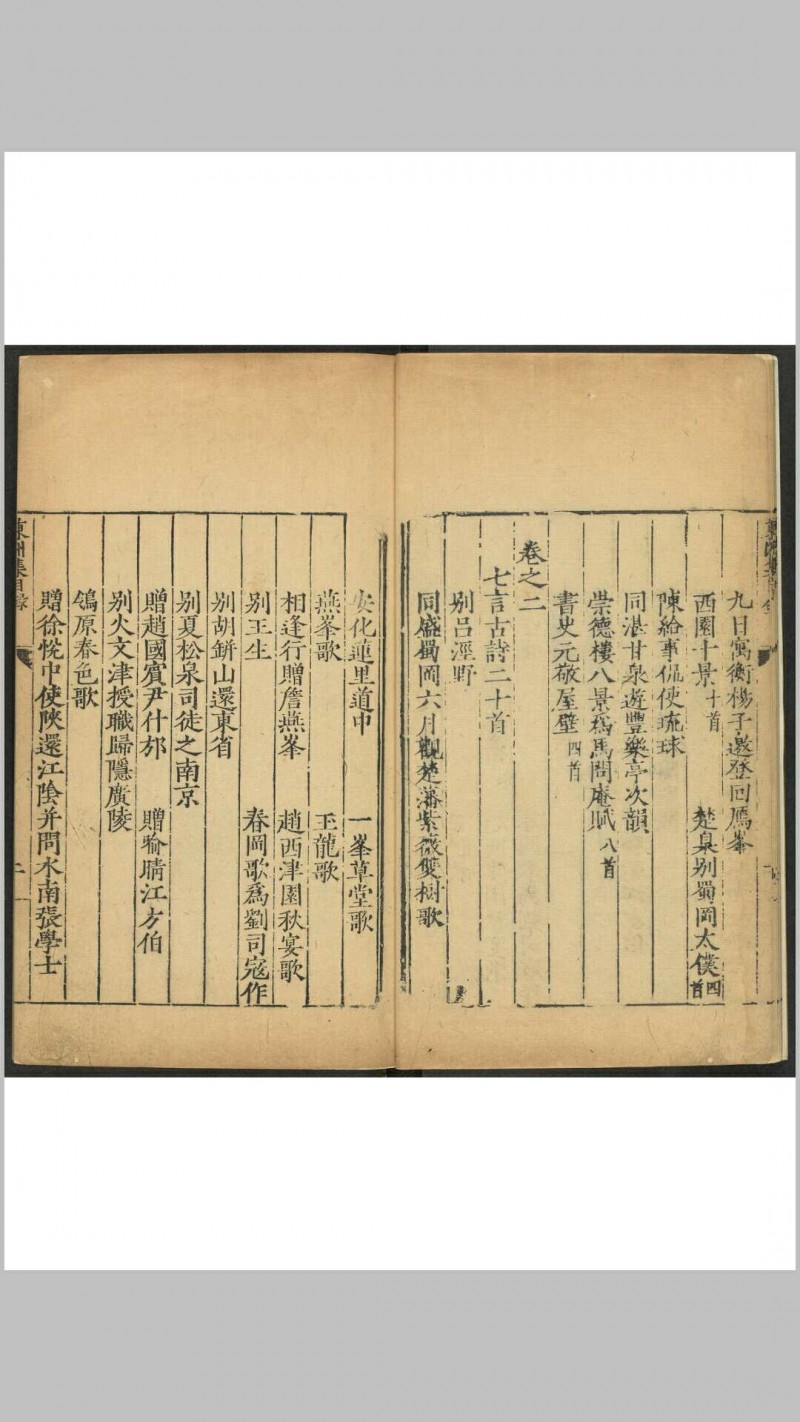 九日寓衡楊子邀登回鴈峯
西園十景 十首 楚臬别蜀岡太僕 四首
陳給事侃使琉球
同湛甘泉遊豐樂亭次韻
崇德樓八景爲馬問庵賦 八首
書史元敬屋壁 四首
卷之二
七言古詩二十首
别吕涇野
同盛蜀岡六月觀楚藩紫薇雙樹歌
安化蓮里道中 一峯草堂歌
燕峯歌 玉龍歌
相逢行贈詹燕峯 趙西津園秋宴歌
别王生 春岡歌爲劉司寇作
别胡鉼山還東省
别夏松泉司徒之南京
贈趙國賓尹什邡 贈喻晴江方伯
别火文津授職歸隱廣陵
鴒原春色歌
贈徐悅中使陝還江陰并問水南張學士
東洲集目錄